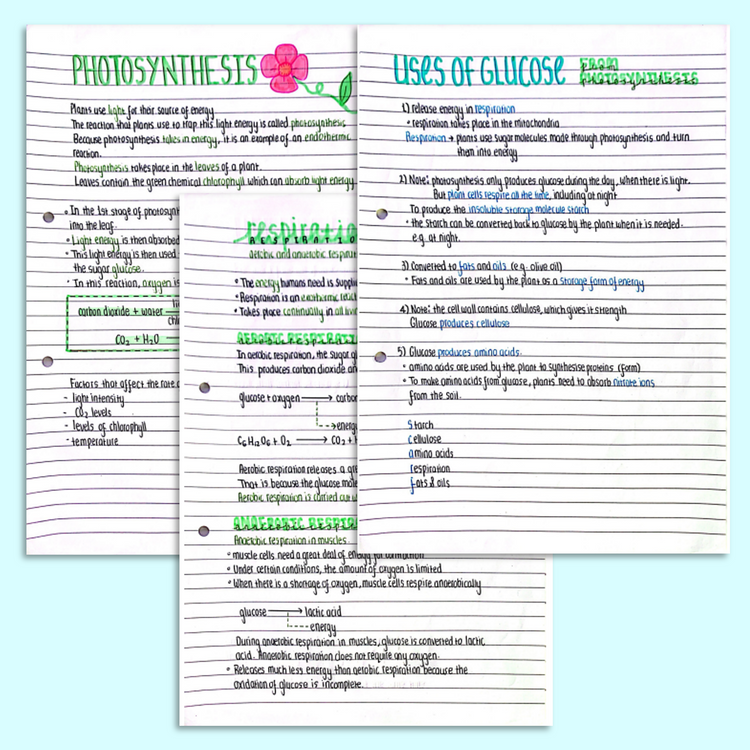 PHOTOSYNTHESIS
Plants use light for their source of energy.
The reaction that plants use to trap this light energy is called photosynthesis.
Because photosynthesis takes in energy, it is an example of an endothermic
reaction.
Photosynthesis takes place in the leaves of a plant.
Leaves contain the green chemical chlorophyll which can absorb light energy.
• In the 1st stage of
into the leaf.
• Light energy is then absorbed
• This light energy is then used
the sugar glucose.
• In this reaction, oxygen is
carbon dioxide + water
CO2 + H2O
Factors that affect the rate
- light intensity
- CO2 levels
- levels of chlorophyll
- temperature
RESPIRATIO
aerobic and anaerobic
• The energy humans need is
• Respiration is an exothermic
• Takes place continually in all
AEROBIC
In aerobic respiration, the sugar
This produces carbon dioxide
glucose + oxygen →
energy
C6H12O6 + O2 → CO2 +
Aerobic respiration releases a
That is because the glucose
Aerobic respiration is carried out
ANAEROBIC
Anaerobic respiration in muscles.
• muscle cells need a great deal of energy for contraction
• Under certain conditions, the amount of oxygen is limited
• When there is a shortage of oxygen, muscle cells respire anaerobically
glucose → lactic acid
energy
During anaerobic respiration in muscles, glucose is converted to lactic
acid. Anaerobic respiration does not require any oxygen.
• Releases much less energy than aerobic respiration because the
oxidation of glucose is incomplete.
USES OF GLUCOSE FROM
PHOTOSYNTHESIS
1) release energy in respiration
• respiration takes place in the mitochondria
Respiration → plants use sugar molecules made through photosynthesis and turn
them into energy
2) Note: photosynthesis only produces glucose during the day, when there is light.
But plant cells respire all the time, including at night
To produce the insoluble storage molecule starch
• the starch can be converted back to glucose by the plant when it is needed.
e.g. at night.
3) Converted to fats and oils (e.g. olive oil)
• Fats and oils are used by the plant as a storage form of energy
4) Note: the cell wall contains cellulose, which gives it strength
Glucose produces cellulose
5) Glucose produces amino acids.
• amino acids are used by the plant to synthesise proteins (form)
• To make amino acids from glucose, plants need to absorb nitrate ions
from the soil.
Starch
cellulose
amino acids
respiration
fats & oils